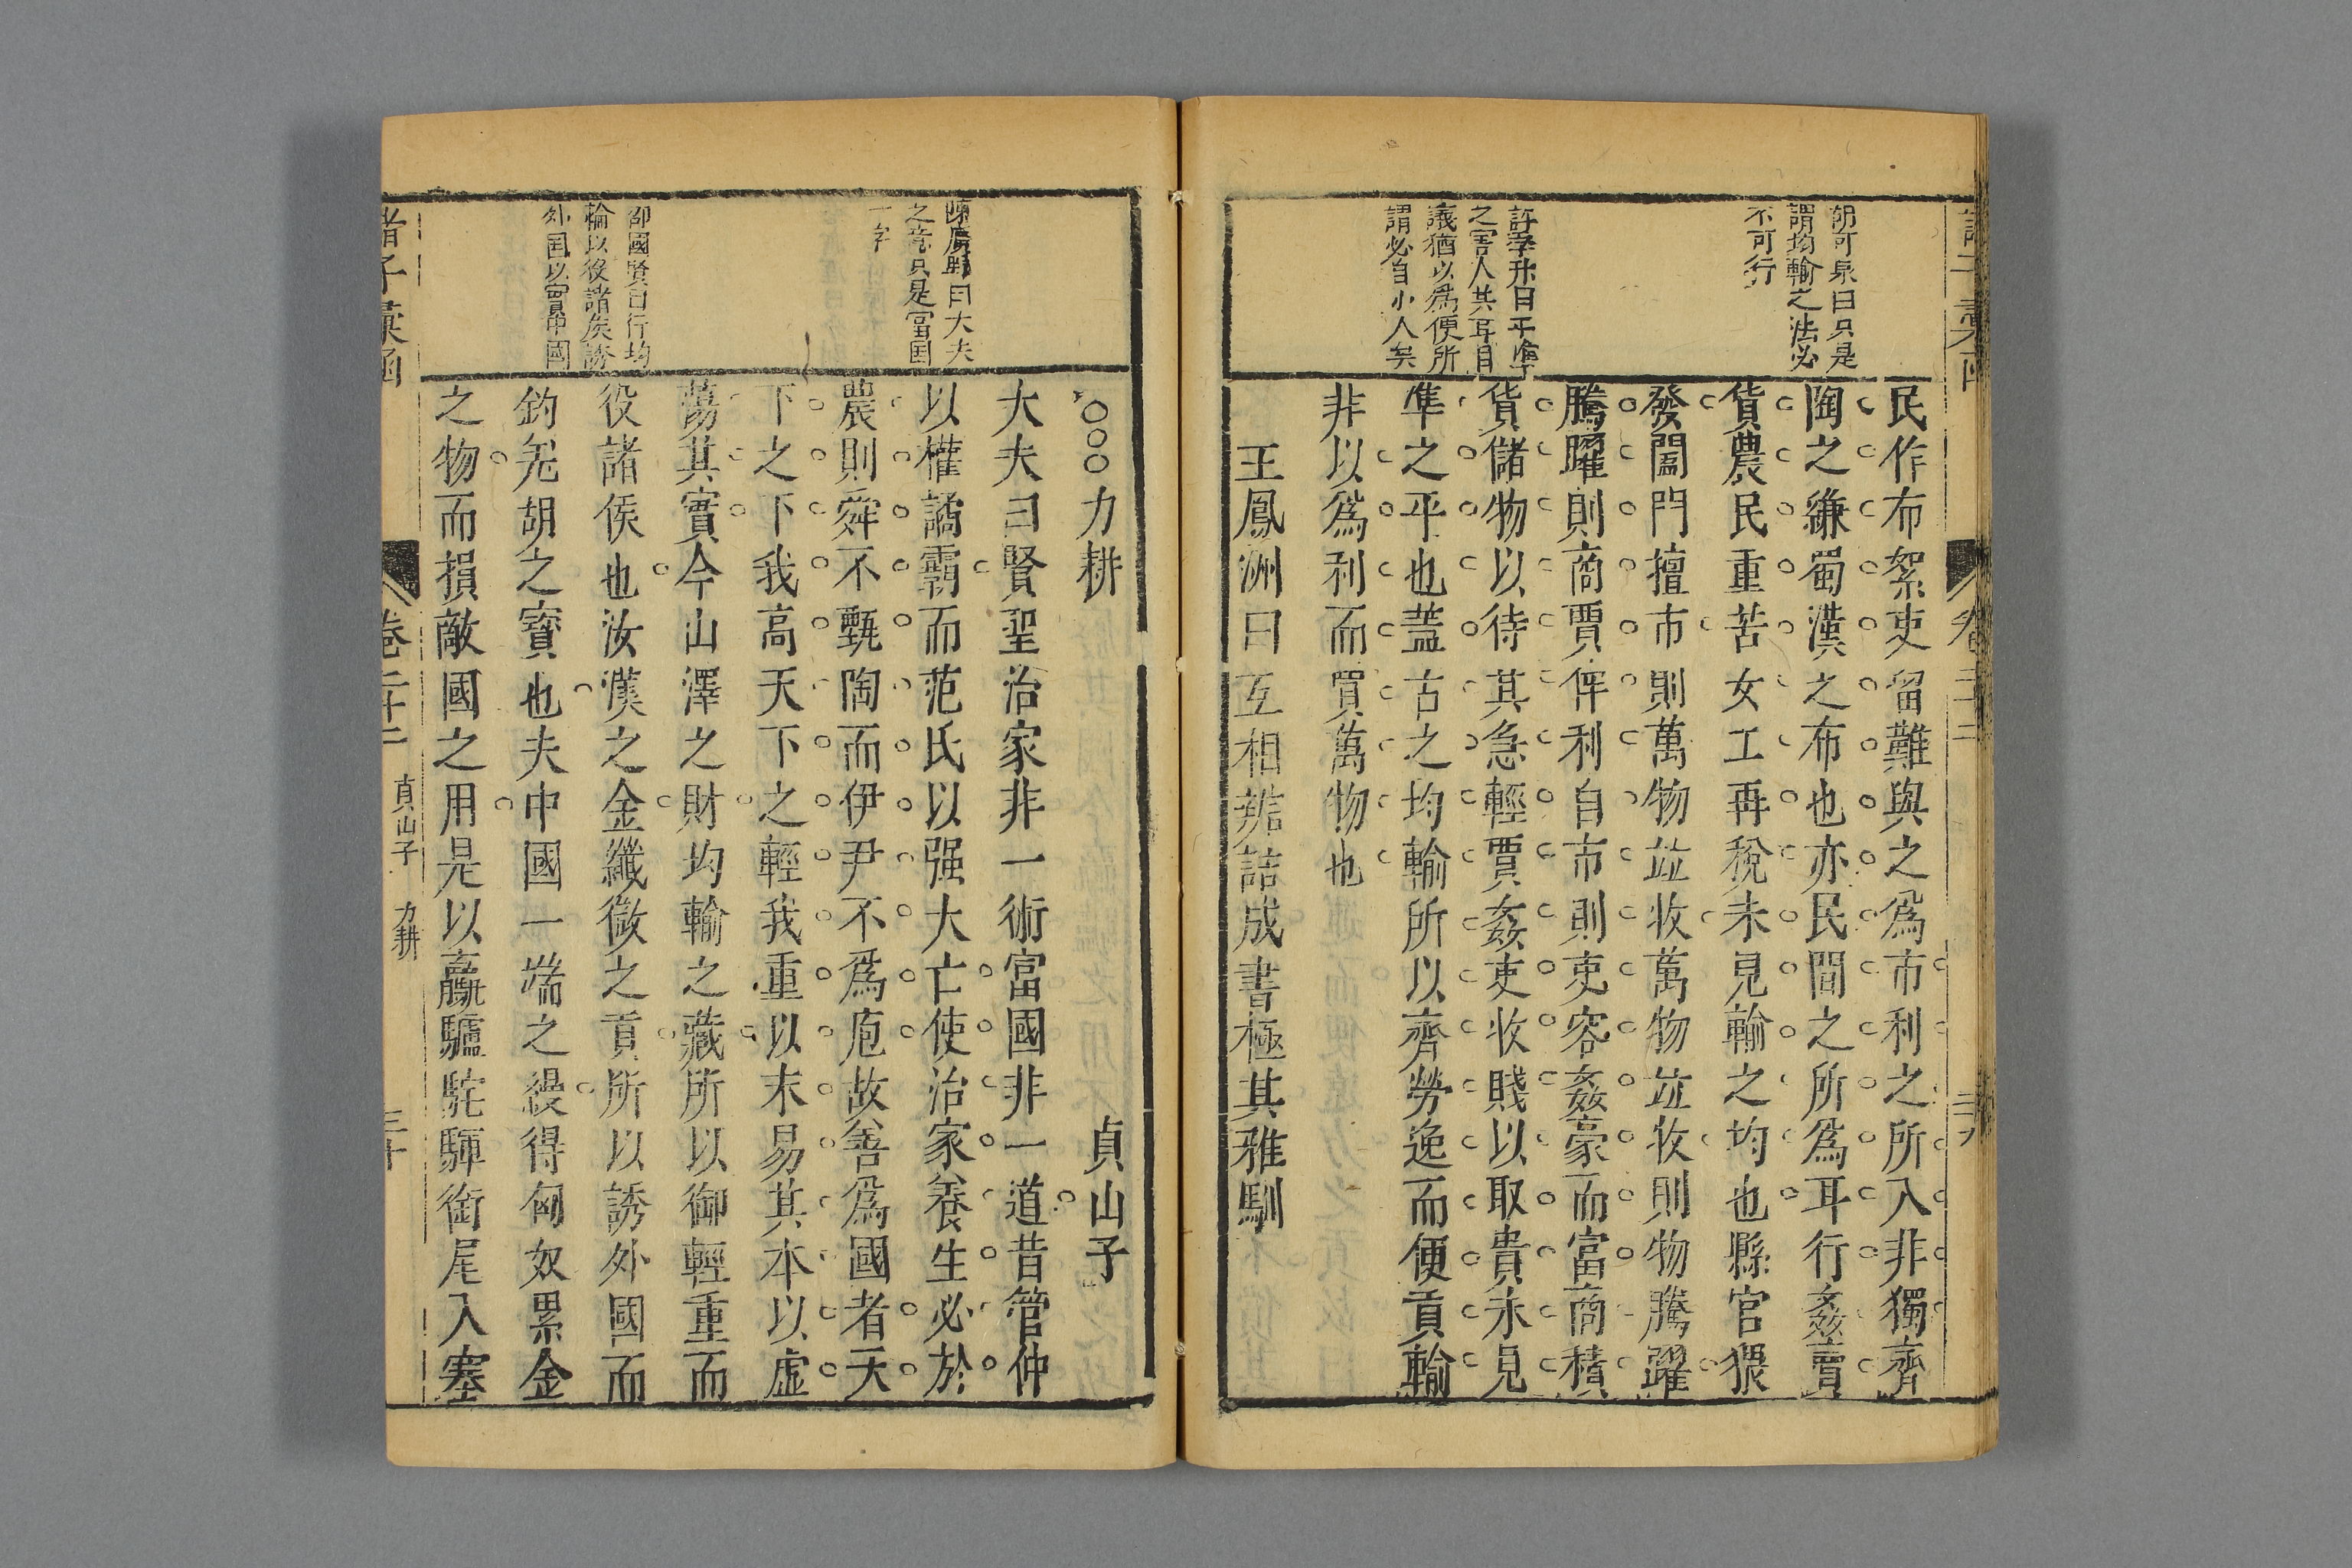 胡可泉曰只是
謂均輸之法必
不可行
許孚升曰平準
之害人其耳目
議猶以為便所
謂必自小人矣
民作布絮吏留難與之為市利之所入非獨齊
陶之縑蜀漢之布也亦民間之所為耳行姦賣
貨農民重苦女工再稅未見輸之均也縣官猥
發闔門擅市則萬物竝收萬物竝收則物騰躍
騰躍則商賈侔利自市則吏容姦豪而富商積
貨儲物以待其急輕賈姦吏收賤以取貴未見
準之平也蓋古之均輸所以齊勞逸而便貢輸
非以為利而買萬物也
王鳳洲曰互相辨詰成書極其雅馴
曰大夫
之意只是富国
一字
邵國賢曰行均
輸以役諸侯誘
外国以實中國
○○○力耕 貞山子
大夫曰賢聖治家非一術富國非一道昔管仲
以權譎霸而范氏以强大亡使治家養生必於
農則舜不甄陶而伊尹不為庖故善為國者天
下之下我高天下之輕我重以末易其本以虛
蕩其實今山澤之財均輸之藏所以御輕重而
役諸侯也汝漢之金纖微之貢所以誘外國而
釣羌胡之寶也夫中國一端之縵得匈奴累金
之物而損敵國之用是以驘驢駝驒銜尾入塞
諸子彙函
卷二十二 貞山子 力耕 三十